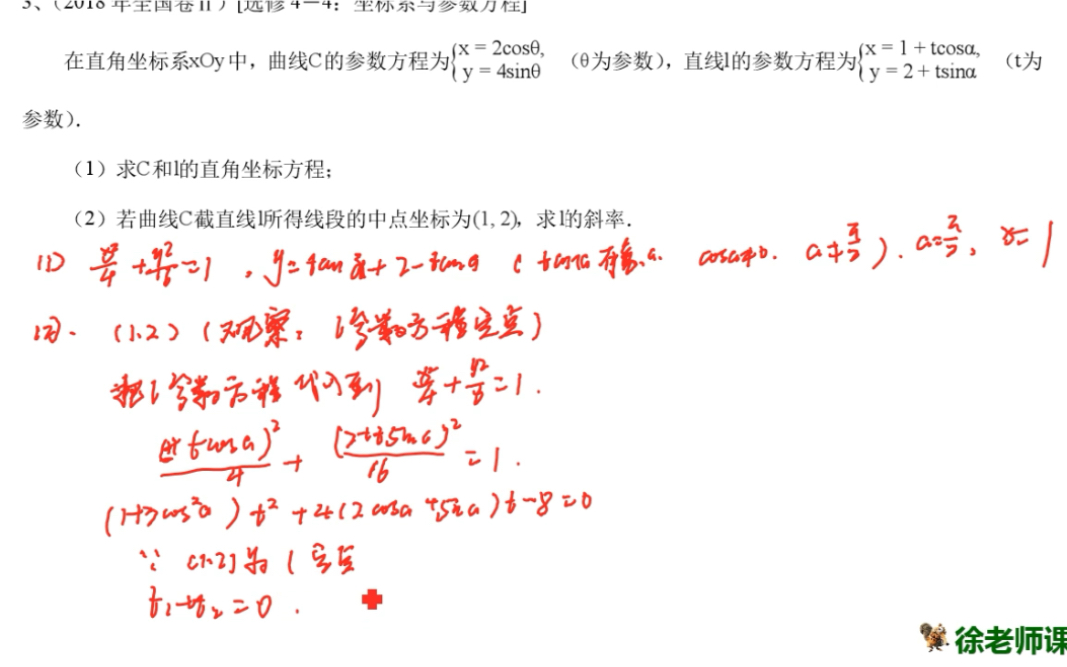 3、(2018 年全国卷Ⅱ) [选修 4－4：坐标系与参数方程]
在直角坐标系xOy中，曲线C的参数方程为{x = 2cosθ, y = 4sinθ （θ为参数），直线l的参数方程为{x = 1 + tcosα, y = 2 + tsinα （t为
参数）.
（1）求C和l的直角坐标方程；
（2）若曲线C截直线l所得线段的中点坐标为(1, 2)，求l的斜率.
(1) x²/4 + y²/16 = 1 , y = tanα x + 2 - tanα ( tanα 存在 cosα≠0. α≠π/2 ). α=π/2, x=1
(2). (1.2) (观察: l参数方程定点)
把l参数方程代入到 x²/4 + y²/16 = 1 .
(1+tcosα)²/4 + (2+tsinα)²/16 = 1 .
(1+3cos²α) t² + 4(2cosα+sinα) t - 8 = 0
∵ (1.2)为l定点
t₁+t₂=0 .
徐老师课